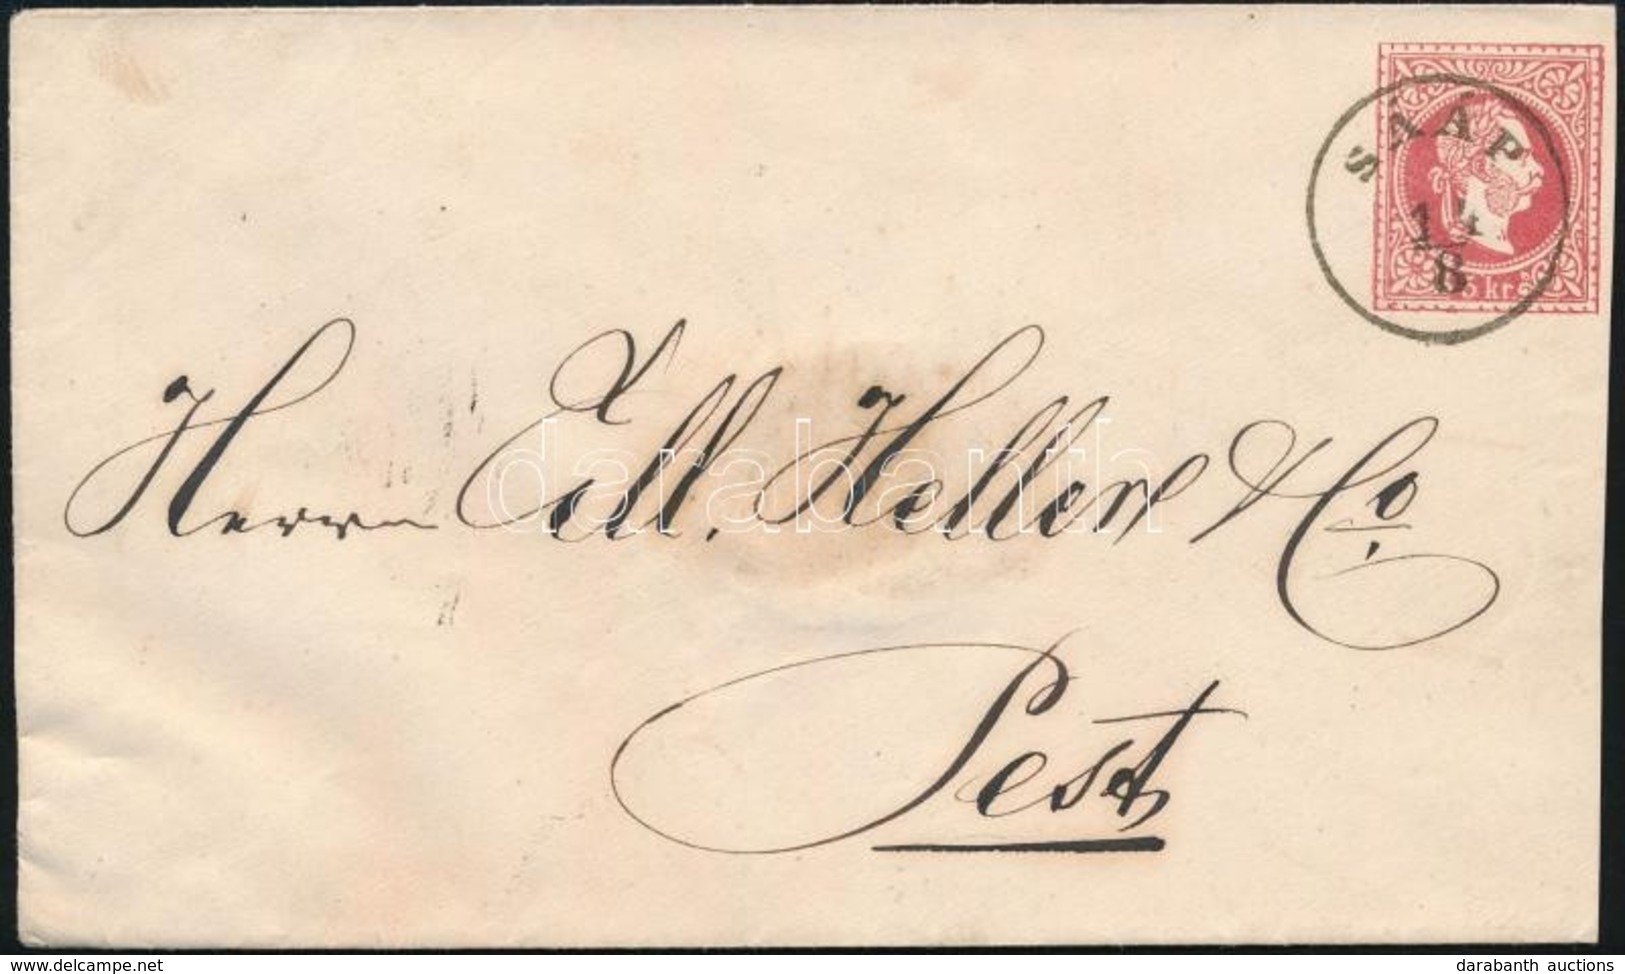 SÁÁP
14
8
5 kr
Herrn Ed. Heller & Co.
Pest
darabanth
delcampe.net
darabanth auctions